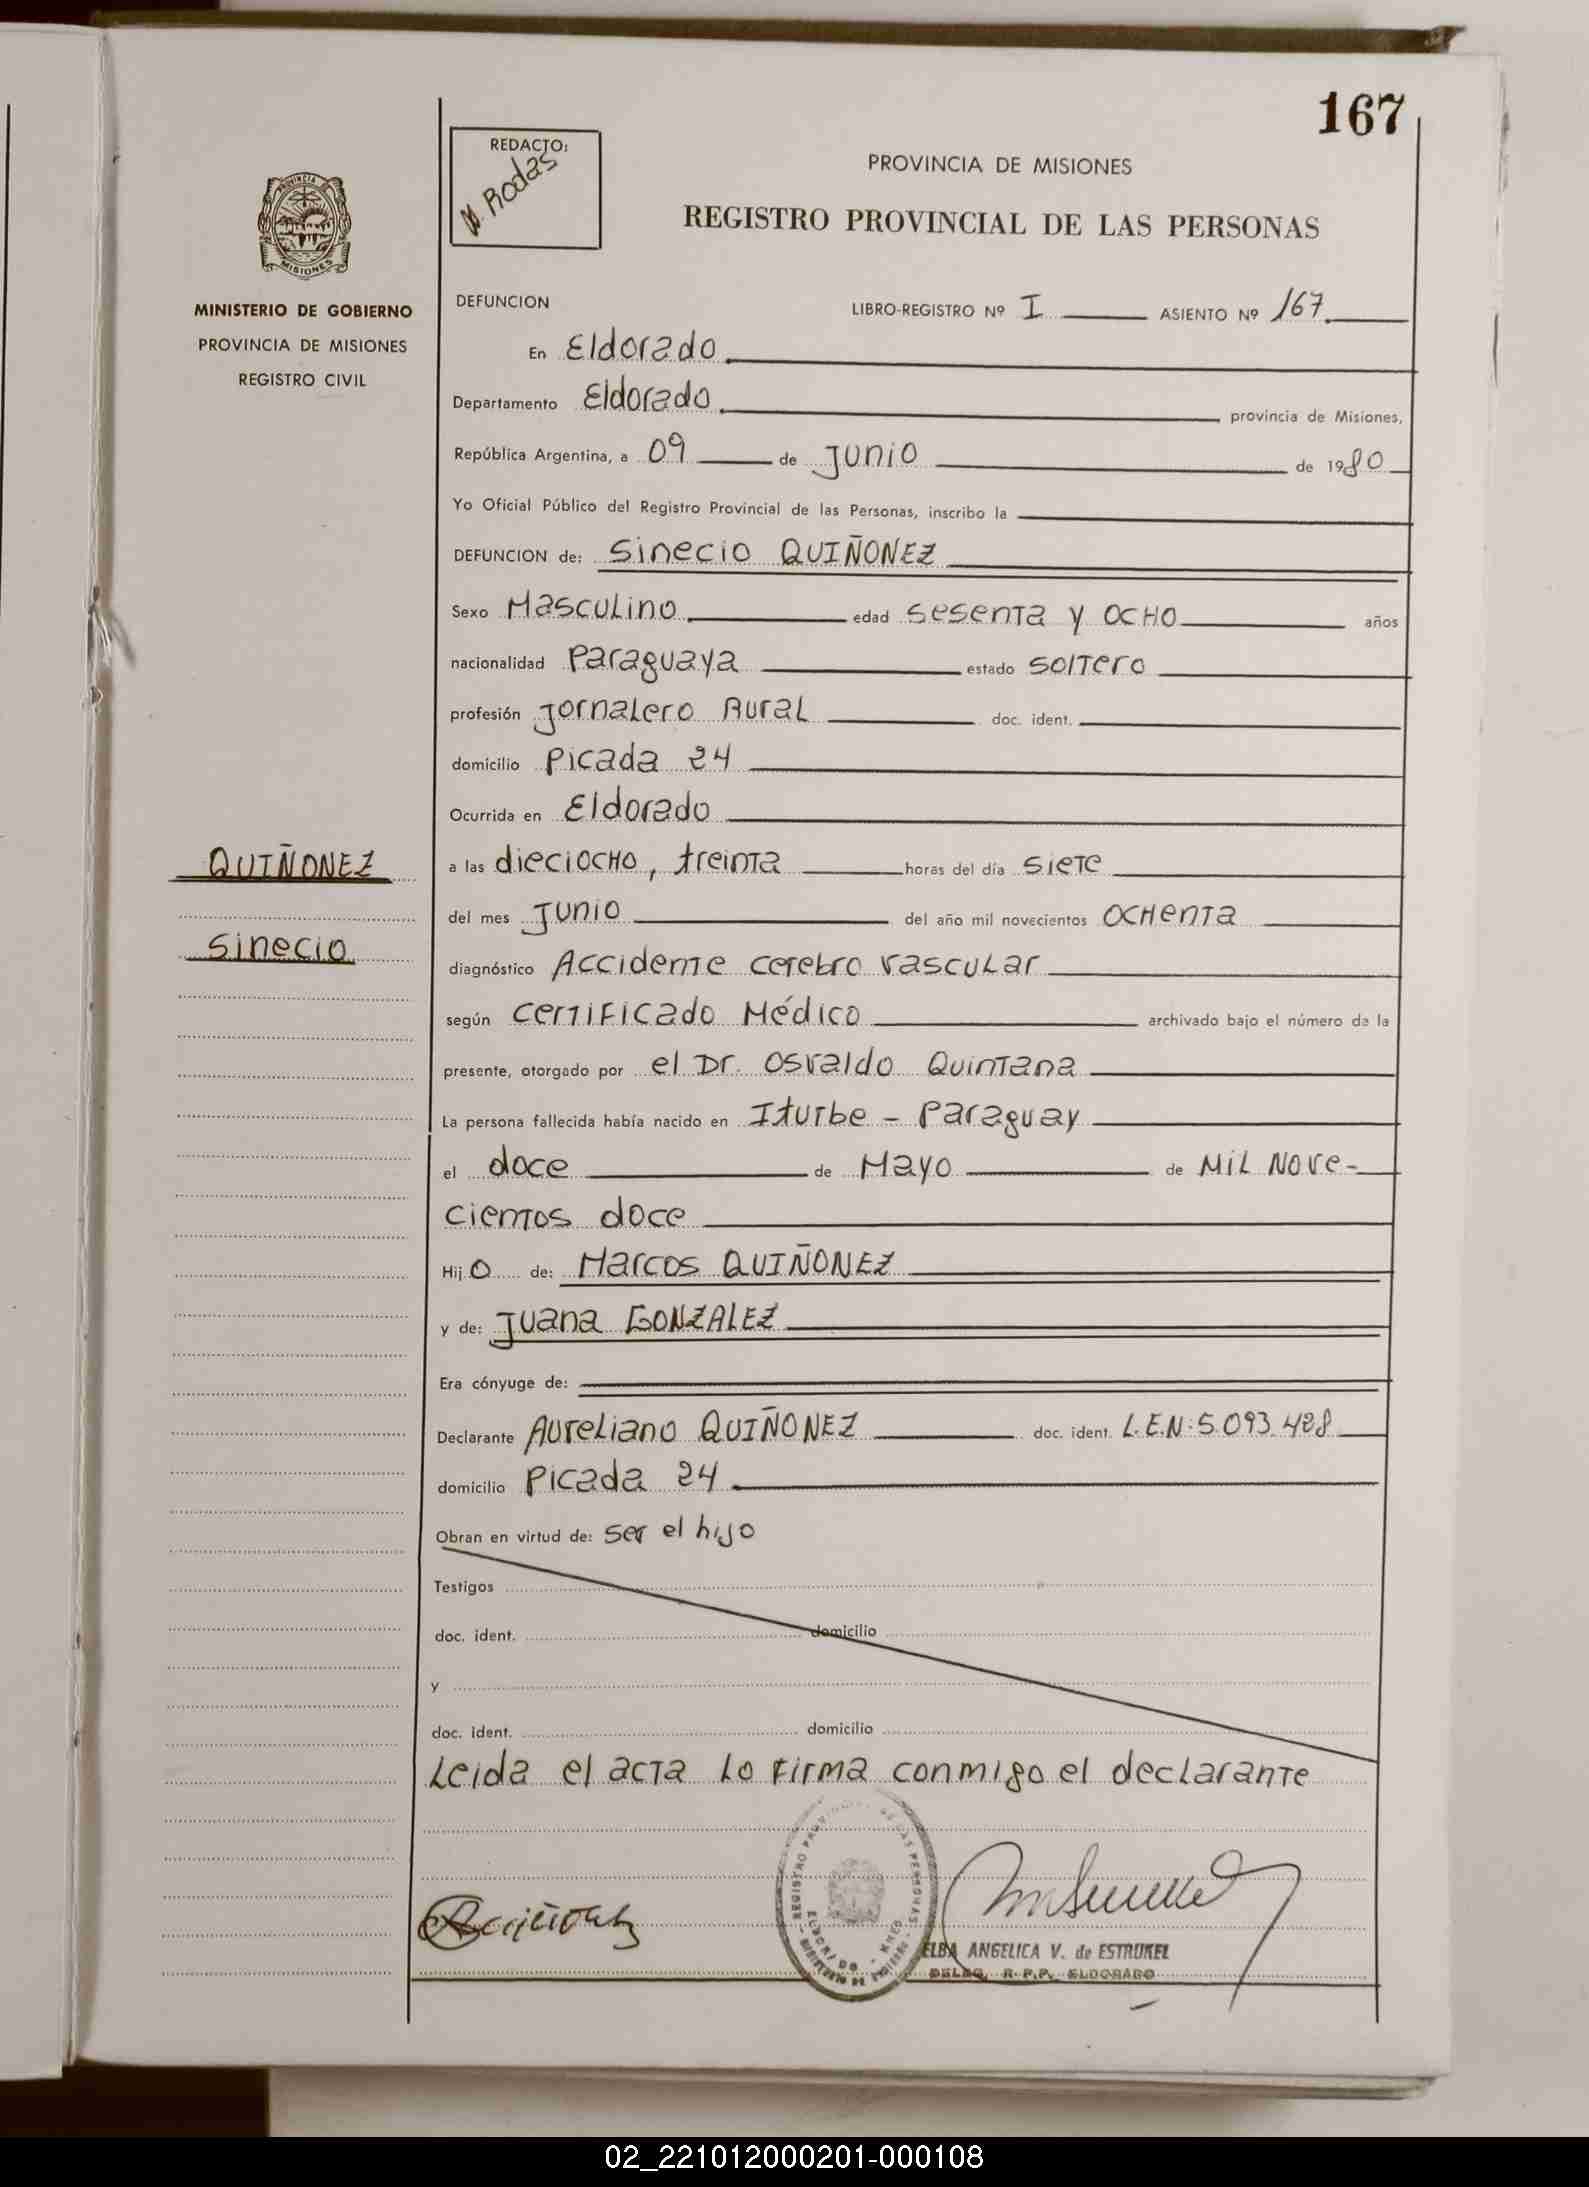 167
REDACTO:
N. Rodas
PROVINCIA DE MISIONES
REGISTRO PROVINCIAL DE LAS PERSONAS
PROVINCIA DE
MISIONES
MINISTERIO DE GOBIERNO
PROVINCIA DE MISIONES
REGISTRO CIVIL
DEFUNCION LIBRO-REGISTRO Nº I ASIENTO Nº 167
En Eldorado
Departamento Eldorado provincia de Misiones,
República Argentina, a 09 de Junio de 1980
Yo Oficial Público del Registro Provincial de las Personas, inscribo la
DEFUNCION de: Sinecio QUIÑONEZ
Sexo Masculino edad sesenta y ocho años
nacionalidad Paraguaya estado soltero
profesión Jornalero Rural doc. ident.
domicilio Picada 24
Ocurrida en Eldorado
QUIÑONEZ
Sinecio
a las dieciocho, treinta horas del día siete
del mes Junio del año mil novecientos ochenta
diagnóstico Accidente cerebro vascular
según certificado Médico archivado bajo el número de la
presente, otorgado por el Dr. Osvaldo Quintana
La persona fallecida había nacido en Iturbe - Paraguay
el doce de Mayo de Mil Nove-
cientos doce
Hijo de: Marcos QUIÑONEZ
y de: Juana GONZALEZ
Era cónyuge de:
Declarante Aureliano QUIÑONEZ doc. ident. L.E.N: 5.093.428
domicilio Picada 24
Obran en virtud de: ser el hijo
Testigos
doc. ident. domicilio
y
doc. ident. domicilio
Leida el acta lo firma conmigo el declarante
REGISTRO PROVINCIAL DE LAS PERSONAS
ELDORADO
ELBA ANGELICA V. de ESTRUKEL
DELEG. R.P.P. ELDORADO
02_221012000201-000108